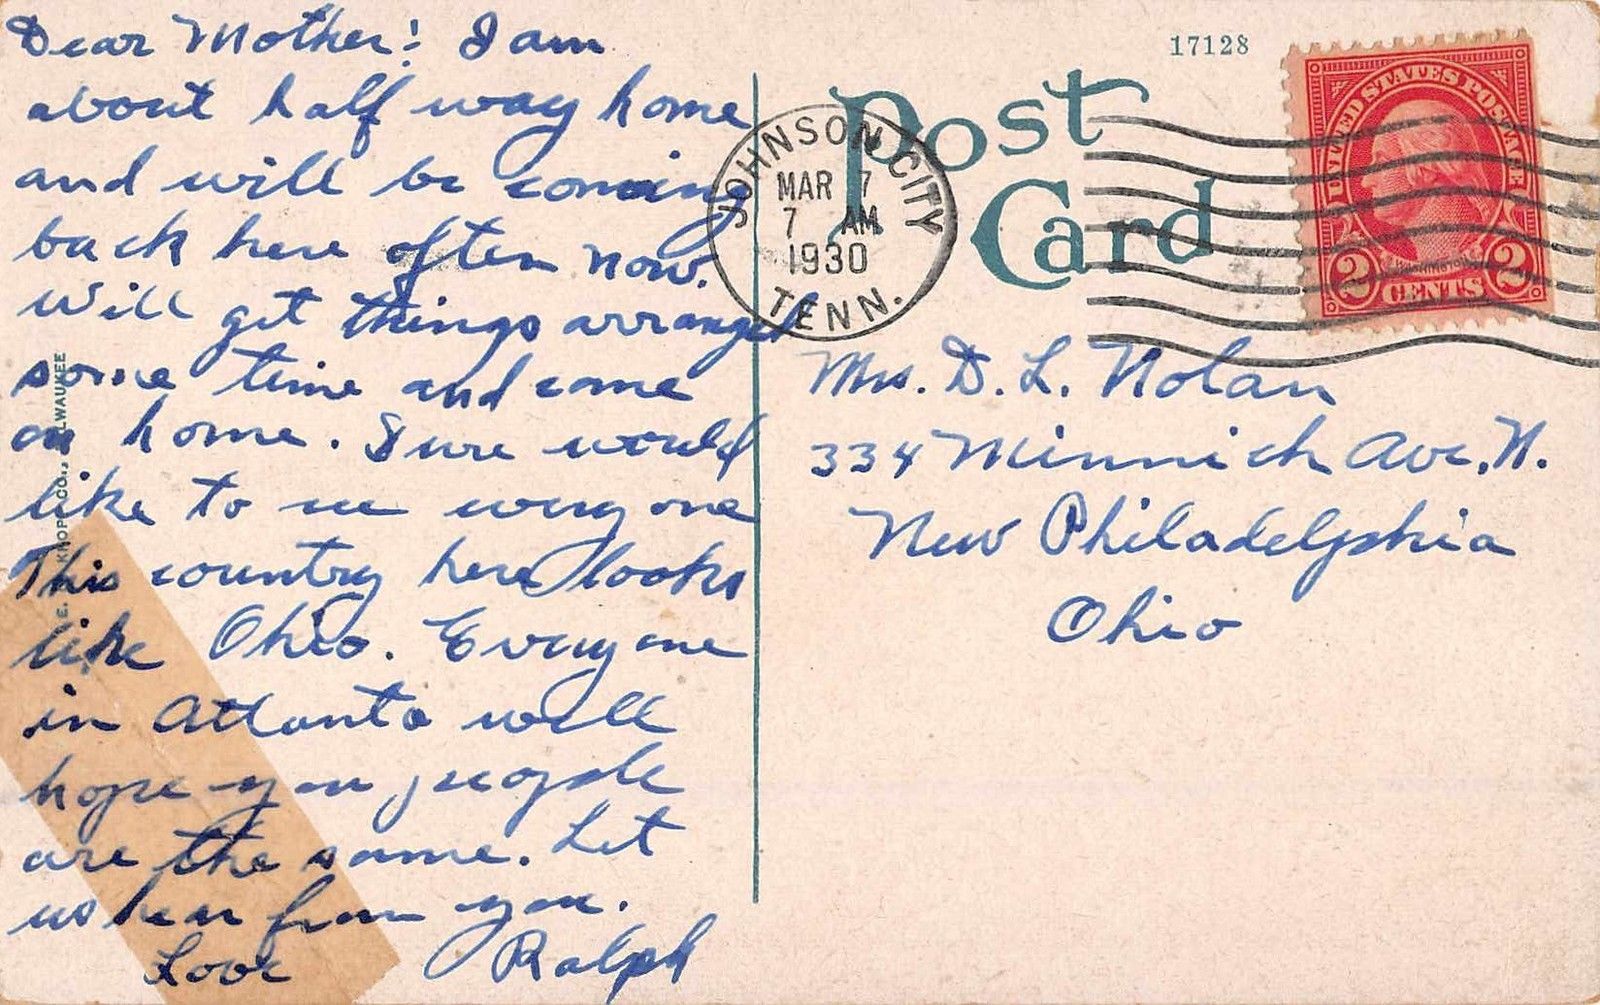 Dear Mother! I am
about half way home
and will be coming
back here often now.
Will get things arranged
some time and come
on home. Sure would
like to see every one
This country here looks
like Ohio. Every one
in Atlanta well
hope you people
are the same. Let
us hear from you.
Love Ralph
17128
Post
Card
JOHNSON CITY
MAR 7
7 AM
1930
TENN.
UNITED STATES POSTAGE
WASHINGTON
2 CENTS 2
Mrs. D. L. Nolan
334 Minnich Ave, N.
New Philadelphia
Ohio
E. KROPP CO., MILWAUKEE